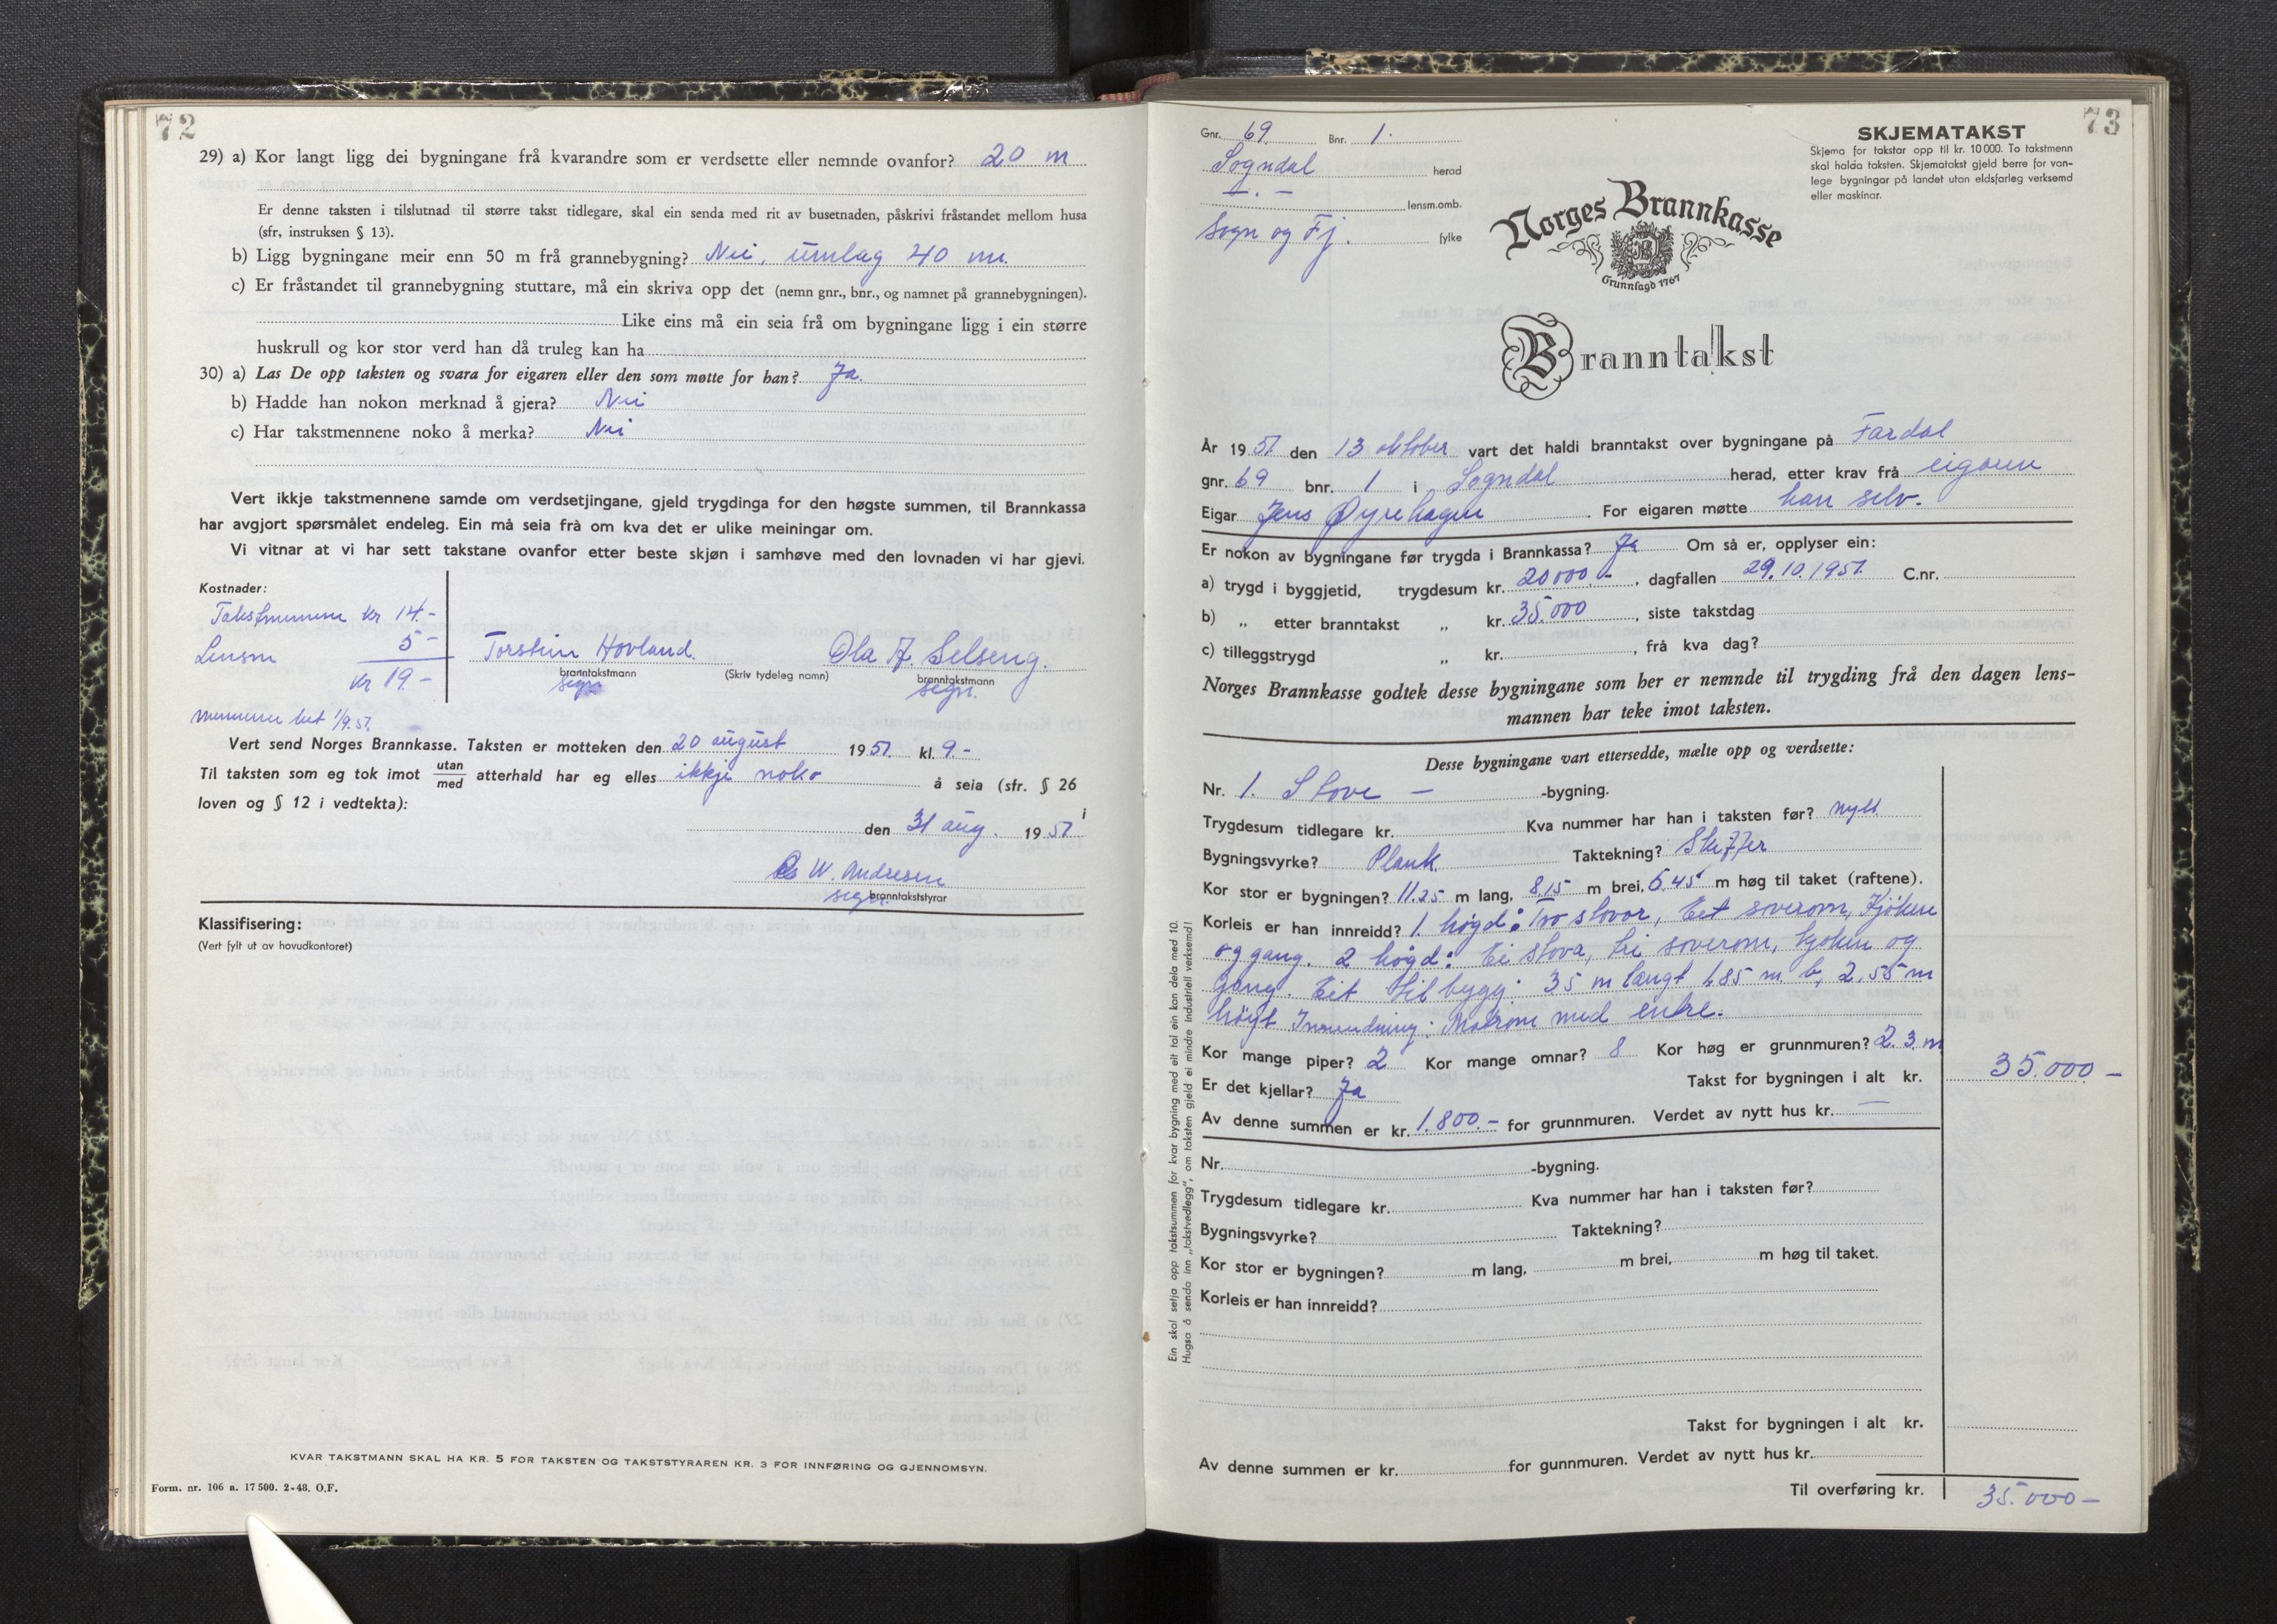 72
29) a) Kor langt ligg dei bygningane frå kvarandre som er verdsette eller nemnde ovanfor? 20 m
Er denne taksten i tilslutnad til større takst tidlegare, skal ein senda med rit av busetnaden, påskrivi fråstandet mellom husa
(sfr, instruksen § 13).
b) Ligg bygningane meir enn 50 m frå grannebygning? Nei, umlag 40 m.
c) Er fråstandet til grannebygning stuttare, må ein skriva opp det (nemn gnr., bnr., og namnet på grannebygningen).
Like eins må ein seia frå om bygningane ligg i ein større
huskrull og kor stor verd han då truleg kan ha
30) a) Las De opp taksten og svara for eigaren eller den som møtte for han? Ja.
b) Hadde han nokon merknad å gjera? Nei
c) Har takstmennene noko å merka? Nei
Vert ikkje takstmennene samde om verdsetjingane, gjeld trygdinga for den høgste summen, til Brannkassa
har avgjort spørsmålet endeleg. Ein må seia frå om kva det er ulike meiningar om.
Vi vitnar at vi har sett takstane ovanfor etter beste skjøn i samhøve med den lovnaden vi har gjevi.
Kostnader:
Takstmennene kr 14.-
Lensm 5-
kr 19.-
Torstein Hovland. Ola A. Selseng.
branntakstmann (Skriv tydeleg namn) branntakstmann
segn. segn.
mennene bet 1/9.51.
Vert send Norges Brannkasse. Taksten er motteken den 20 august 1951. kl. 9.-
Til taksten som eg tok imot utan/med atterhald har eg elles ikkje noko å seia (sfr. § 26
loven og § 12 i vedtekta):
i
den 31 aug. 1951
W. Andresen
segn. branntakststyrar
Klassifisering:
(Vert fylt ut av hovudkontoret)
KVAR TAKSTMANN SKAL HA KR. 5 FOR TAKSTEN OG TAKSTSTYRAREN KR. 3 FOR INNFØRING OG GJENNOMSYN.
Form. nr. 106 a. 17 500. 2-48. O.F.
73
Gnr. 69. Bnr. 1.
Sogndal herad
— „ — lensm.omb.
Sogn og Fj. fylke
SKJEMATAKST
Skjema for takstar opp til kr. 10 000. To takstmenn
skal halda taksten. Skjematakst gjeld berre for van-
lege bygningar på landet utan eldsfarleg verksemd
eller maskinar.
Norges Brannkasse
Grunnlagd 1767
Branntakst
År 1951 den 13 oktober vart det haldi branntakst over bygningane på Fardal
gnr. 69 bnr. 1 i Sogndal herad, etter krav frå eigaren
Eigar Jens Øyrehagen . For eigaren møtte han selv.
Er nokon av bygningane før trygda i Brannkassa? Ja Om så er, opplyser ein:
a) trygd i byggjetid, trygdesum kr. 20 000.-, dagfallen 29.10.1951. C.nr.
b) „ etter branntakst „ kr. 35.000, siste takstdag
c) tilleggstrygd „ kr. , frå kva dag?
Norges Brannkasse godtek desse bygningane som her er nemnde til trygding frå den dagen lens-
mannen har teke imot taksten.
Desse bygningane vart ettersedde, mælte opp og verdsette:
Nr. 1. Stove — -bygning.
Trygdesum tidlegare kr. Kva nummer har han i taksten før? nytt
Bygningsvyrke? Plank. Taktekning? Skiffer
Kor stor er bygningen? 11.25 m lang, 8.15 m brei, 6.45 m høg til taket (raftene).
Korleis er han innreidd? 1. høgd: Tvo stovor, Eet soverom, Kjöken
og gang. 2 høgd: Ei stova, tri soverom, kjøken og
gang. Eit tilbygg: 35 m langt 1,85 m. b, 2,55 m
høgt Innreidning: Matrom med entre.
Kor mange piper? 2 Kor mange omnar? 8 Kor høg er grunnmuren? 2.3. m
Er det kjellar? Ja Takst for bygningen i alt kr. 35.000.-
Av denne summen er kr. 1.800.- for grunnmuren. Verdet av nytt hus kr. —
Nr. -bygning.
Trygdesum tidlegare kr. Kva nummer har han i taksten før?
Bygningsvyrke? Taktekning?
Kor stor er bygningen? m lang, m brei, m høg til taket.
Korleis er han innreidd?
Takst for bygningen i alt kr.
Av denne summen er kr. for gunnmuren. Verdet av nytt hus kr.
Til overføring kr. 35.000-
Ein skal setja opp takstsummen for kvar bygning med eit tal ein kan dela med 10.
Hugsa å senda inn „takstvedlegg", om taksten gjeld ei mindre industriell verksemd!